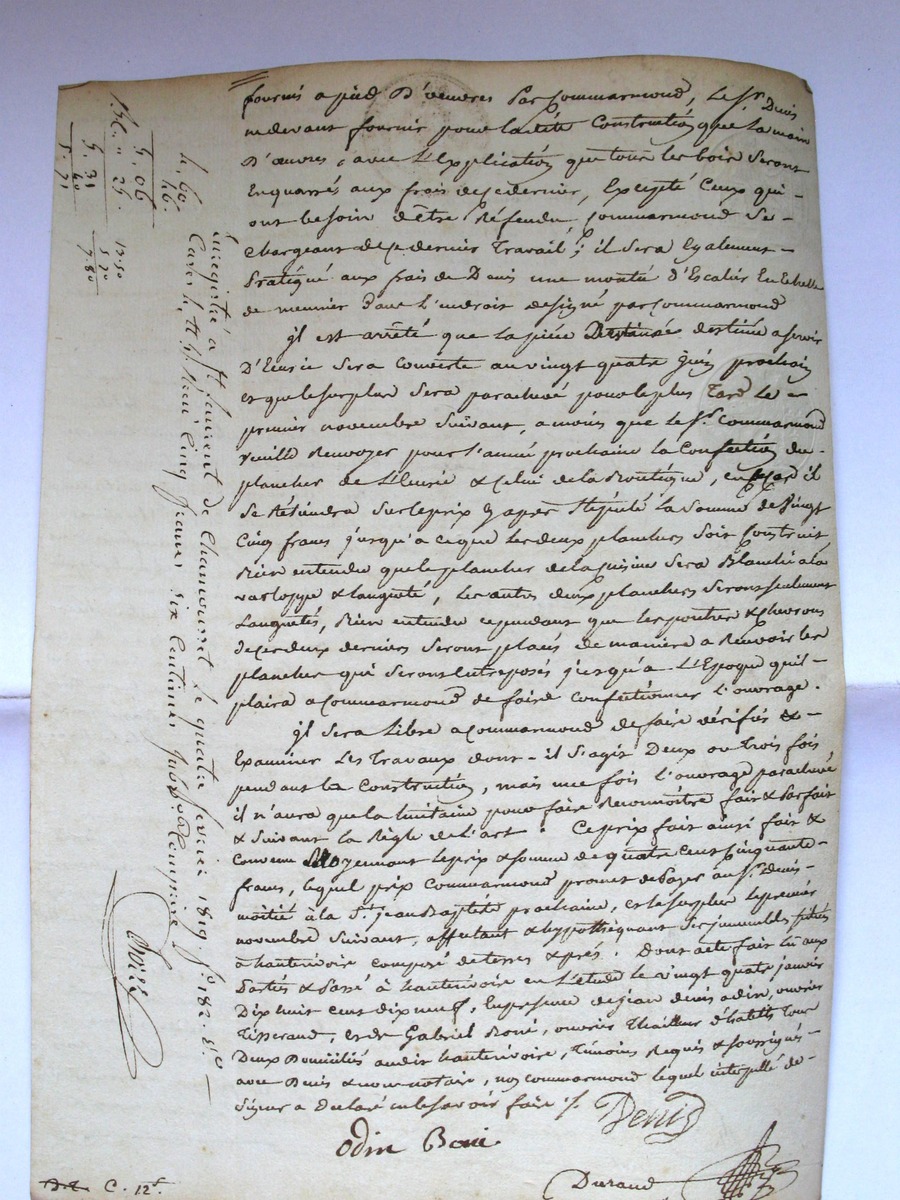 fournis a pied D'œuvres Par Commarmond, le Sr. Denis
ne devant fournir pour ladite Construction que La main
D'œuvres, avec L'Explication que tous les bois Seront
Enquarrés aux frais de ce dernier, Excepté Ceux qui
ont besoin d'être Réfendu, Commarmond Se
Chargeant de Ce dernier Travail; il Sera Egalement
Pratiqué aux frais de Denis une montée d'Escalier En Echelle
de meunier Dans L'endroit designé par Commarmond
il est arrêté que La pièce destinée a servir
D'Ecurie Sera Couverte au vingt quatre juin prochain
et que le surplus Sera parachevé pour le plus Tard Le
premier novembre Suivant, a moins que Le Sr. Commarmond
veuille Renvoyer pour l'année prochaine La Confection du
plancher de L'Ecurie & Celui de la Boutique, en Ce Cas il
Se Retiendra Sur le prix Cy après Stipulé La Somme de Vingt
Cinq francs jusqu'a ce que Les deux planchers Soit Construit,
Bien entendu que le plancher de la Cuisine Sera Blanchi a la
varloppe & Langueté, Les autres deux planchers Seront seulement
Languetés, Bien entendu cependant que les poutres & chevrons
de ces deux derniers Seront placés de maniere a Recevoir les
plancher qui Seront Entreposés jusqu'a L'Epoque qu'il
plaira a Commarmond de faire Confectionner L'ouvrage.
il Sera Libre a Commarmond de faire vérifier &
Examiner Les Travaux dont il S'agit Deux ou Trois fois
pendant La Construction, mais une fois L'ouvrage parachevé
il n'aura que la huitaine pour faire Reconnoitre fait & Parfait
& Suivant La Règle de L'art. Ce prix fait ainsi fait &
Convenu Moyennant Le prix & somme de quatre Cent Cinquante
francs, lequel prix Commarmond promet de Payer au Sr. Denis
moitié à la St. jean Baptiste prochaine, et le Surplus Le premier
novembre Suivant, affectant & hypothéquant Ses immeubles situés
à hauterivoire Composé de terres & prés. Dont acte fait Lu aux
Parties & Passé à hauterivoire en L'étude le vingt quatre janvier
Dix huit cent dix neuf, En présence de jean denis odin, ouvrier
Tisserand, et de Gabriel Boné, ouvrier Thailleur d'habits Tous
Deux Domiciliés audit hauterivoire, Témoins Requis & Soussignés
avec Denis & nous notaire, non Commarmond lequel interpellé de
Signer a Déclaré ne le Savoir faire ./.
Denis
odin
Durand
C. 12f.
Enregistré a St Laurent de Chamousset le quatre fevrier 1819. fo. 182.
cinq francs six Centimes
4. 60.
46.
5. 06
25.
5. 31
40
5. 71